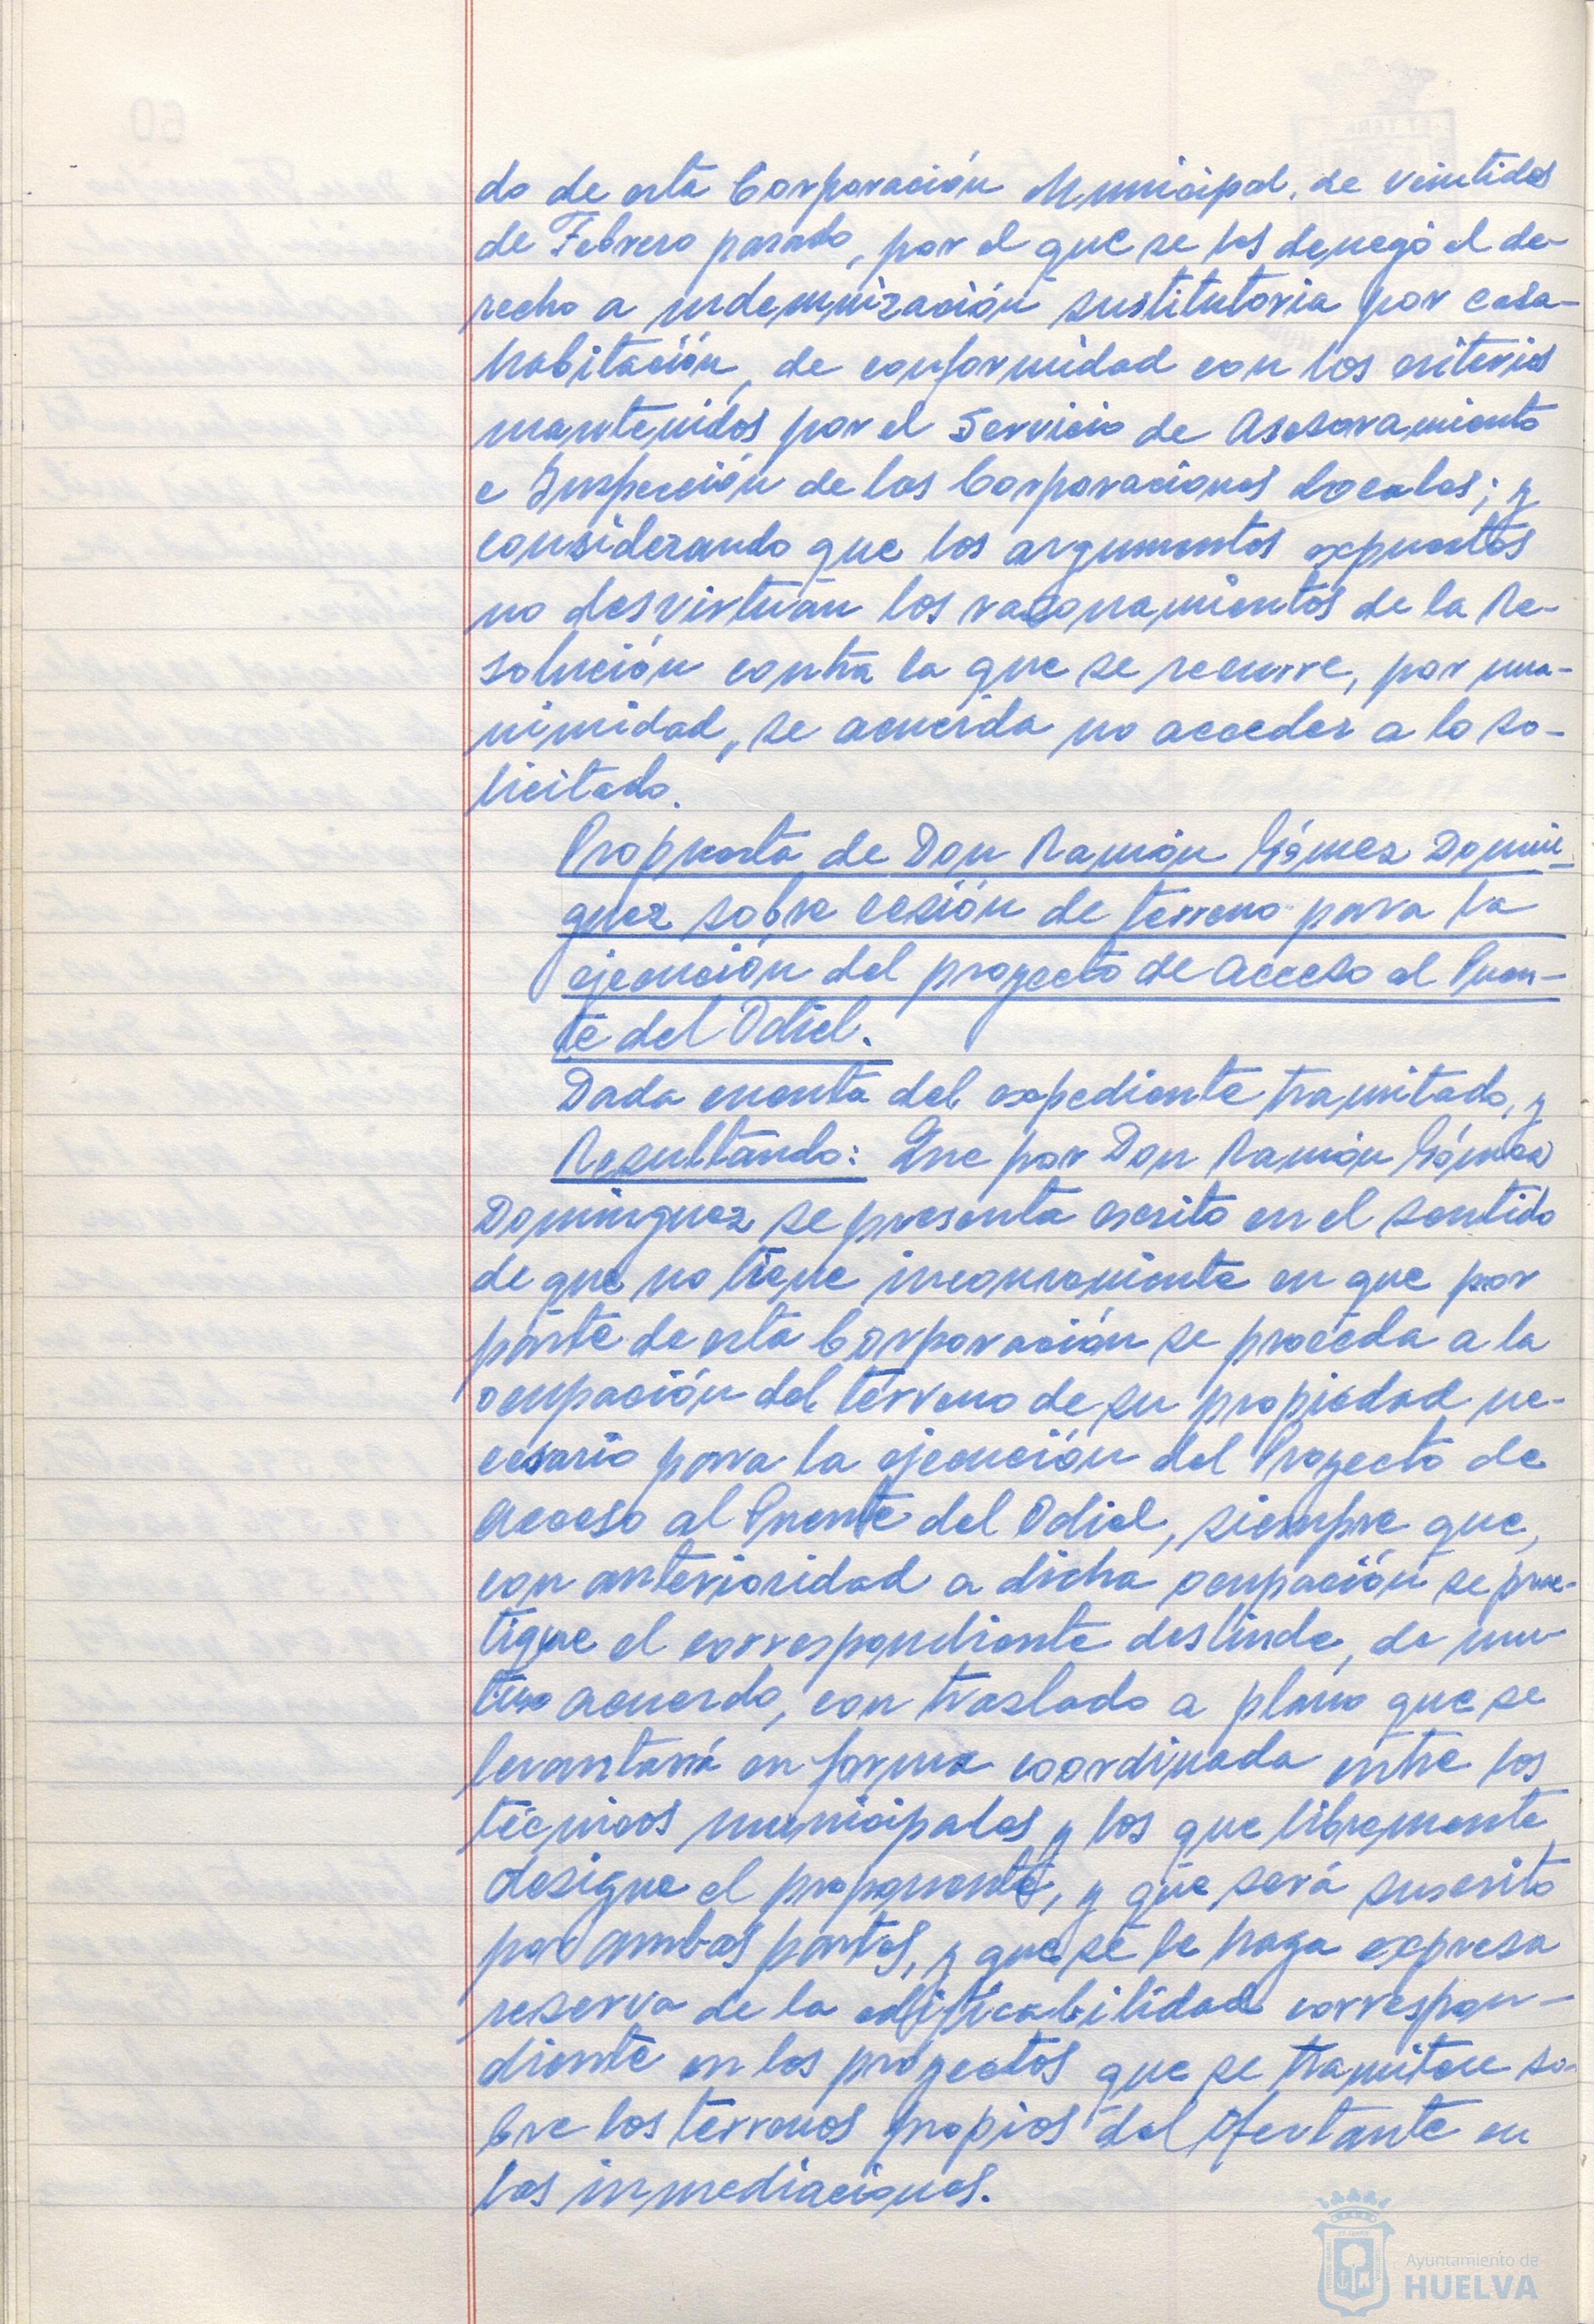 do de esta Corporación Municipal, de veintidos
de Febrero pasado, por el que se les denegó el de-
recho a indemnización sustitutoria por casa-
habitación, de conformidad con los criterios
mantenidos por el Servicio de Asesoramiento
e Inspección de las Corporaciones Locales; y
considerando que los argumentos expuestos
no desvirtúan los razonamientos de la Re-
solución contra la que se recurre, por una-
nimidad, se acuerda no acceder a lo so-
licitado.
Propuesta de Don Ramón Gómez Domín-
guez sobre cesión de terreno para la
ejecución del proyecto de acceso al Puen-
te del Odiel.
Dada cuenta del expediente tramitado, y
Resultando: Que por Don Ramón Gómez
Domínguez se presenta escrito en el sentido
de que no tiene inconveniente en que por
parte de esta Corporación se proceda a la
ocupación del terreno de su propiedad ne-
cesario para la ejecución del Proyecto de
acceso al Puente del Odiel, siempre que,
con anterioridad a dicha ocupación se prac-
tique el correspondiente deslinde, de mu-
tuo acuerdo, con traslado a plano que se
levantará en forma coordinada entre los
técnicos municipales y los que libremente
designe el proponente, y que será suscrito
por ambas partes, y que se le haga expresa
reserva de la edificabilidad correspon-
diente en los proyectos que se tramiten so-
bre los terrenos propios del ofertante en
las inmediaciones.
Ayuntamiento de
HUELVA